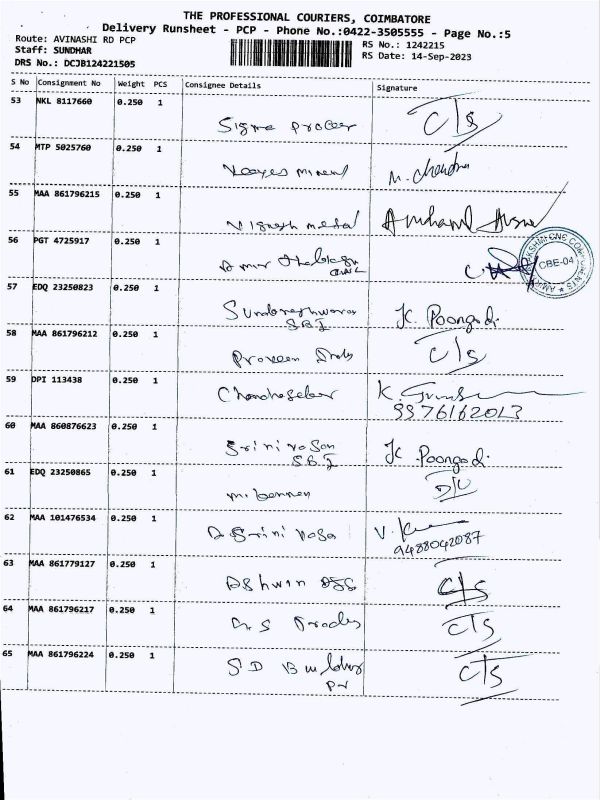 THE PROFESSIONAL COURIERS, COIMBATORE
Delivery Runsheet - PCP - Phone No.:0422-3505555 - Page No.:5
Route: AVINASHI RD PCP
RS No.: 1242215
Staff: SUNDHAR
RS Date: 14-Sep-2023
DRS No.: DCJB124221505
S No Consignment No Weight PCS Consignee Details Signature
53 NKL 8117660 0.250 1
Sigma C/S
54 MTP 5025760 0.250 1
M. Chandra
55 MAA 861796215 0.250 1
Vignesh metal
56 PGT 4725917 0.250 1
CBE-04
57 EDQ 23250823 0.250 1
K Poongodi
SBI
58 MAA 861796212 0.250 1
Praveen C/S
59 DPI 113438 0.250 1
Chandrasekar K.
9976162013
60 MAA 860876623 0.250 1
Srinivasan K Poongodi
SBI
61 EDQ 23250865 0.250 1
62 MAA 101476534 0.250 1
V.
9488042087
63 MAA 861779127 0.250 1
Ashwin C/S
64 MAA 861796217 0.250 1
C/S
65 MAA 861796224 0.250 1
S D Builders C/S